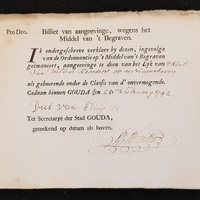 Pro Deo.
Billiet van aangeevinge, wegens het
Middel van 't Begraven.
Ik ondergeschreve verklare by desen, ingevolge
van de Ordonnantie op 't Middel van 't Begraven
geëmaneert, aangeevinge te doen van het Lyk van
Van
als gehoorende onder de Classis van d' onvermogende.
Gedaan binnen GOUDA den 20 February 1792
Dirk van
Ter Secretarye der Stad GOUDA,
geteekend op datum als boven.